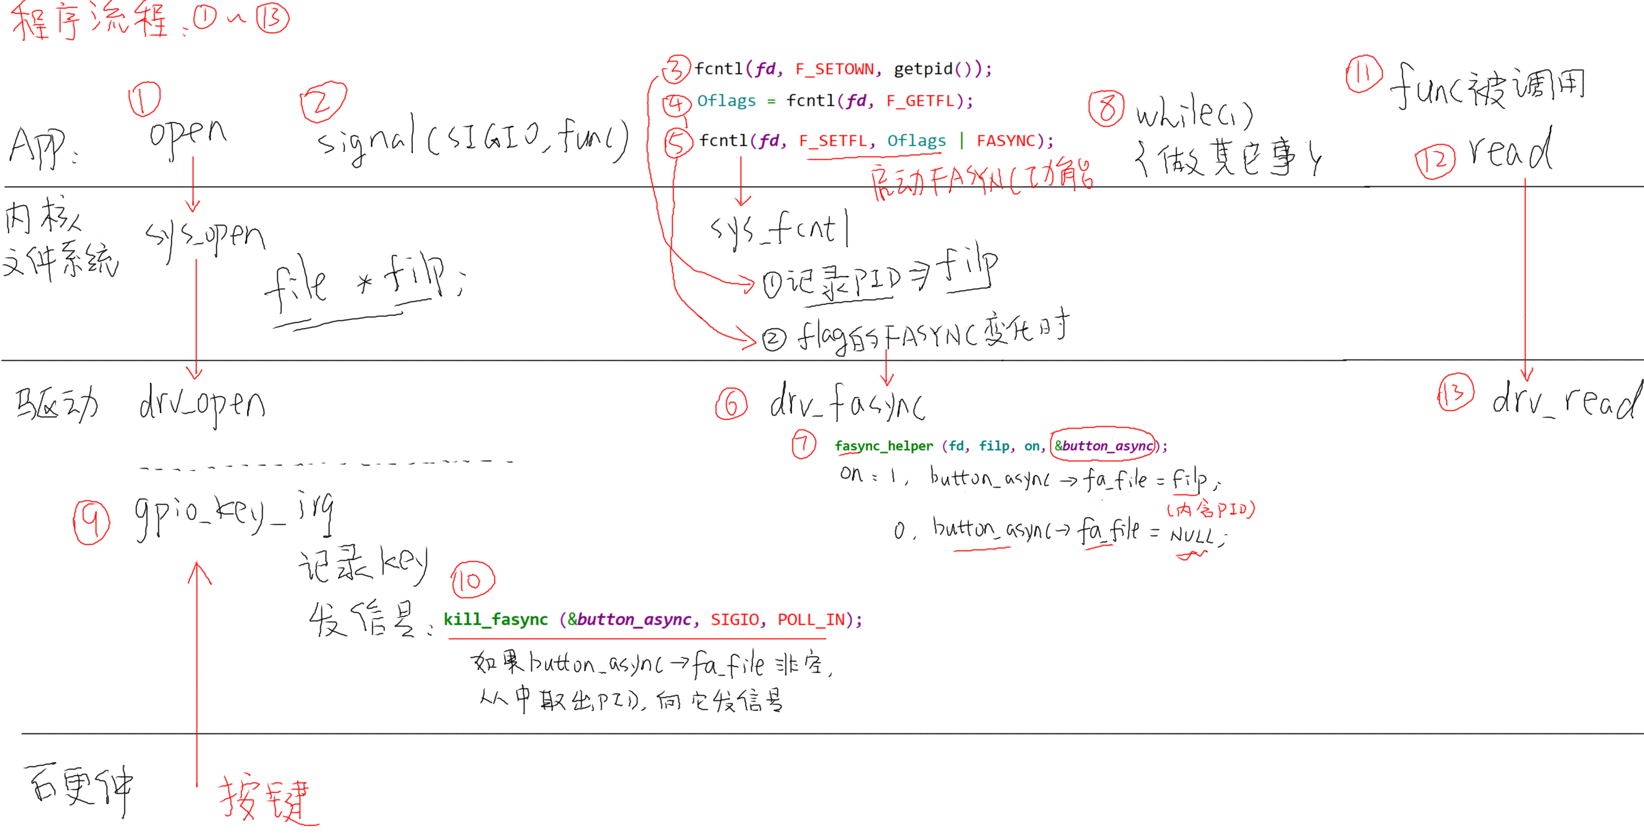 程序流程:①~⑬
③ fcntl(fd, F_SETOWN, getpid());
④ Oflags = fcntl(fd, F_GETFL);
⑤ fcntl(fd, F_SETFL, Oflags | FASYNC);
启动FASYNC功能
App:
① open
② signal(SIGIO, func)
⑧ while(1)
{做其它事}
⑪ func被调用
⑫ read
内核
文件系统
sys_open
file * filp;
sys_fcntl
①记录PID→filp
②flag的FASYNC变化时
驱动
drv_open
⑥ drv_fasync
⑬ drv_read
⑦ fasync_helper (fd, filp, on, &button_async);
on: 1, button_async→fa_file = filp;
(内含PID)
0, button_async→fa_file = NULL;
⑨ gpio_key_irq
记录key
⑩
发信号: kill_fasync (&button_async, SIGIO, POLL_IN);
如果button_async→fa_file非空,
从中取出PID,向它发信号
硬件
按键